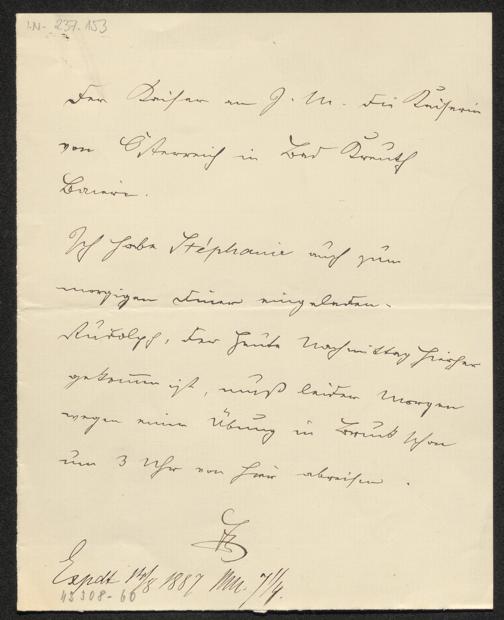 I.N. 237.153
Der Kaiser an J. M. die Kaiserin
von Österreich in Bad Kreuth
Baiern.
Ich habe Stéphanie auch zum
morgigen Diner eingeladen.
Rudolph, der heute Nachmittag hierher
gekommen ist, muß leider Morgen
wegen einer Übung in Bruck schon
um 3 Uhr von hier abreisen.
Expdt /8 1887
45308-60